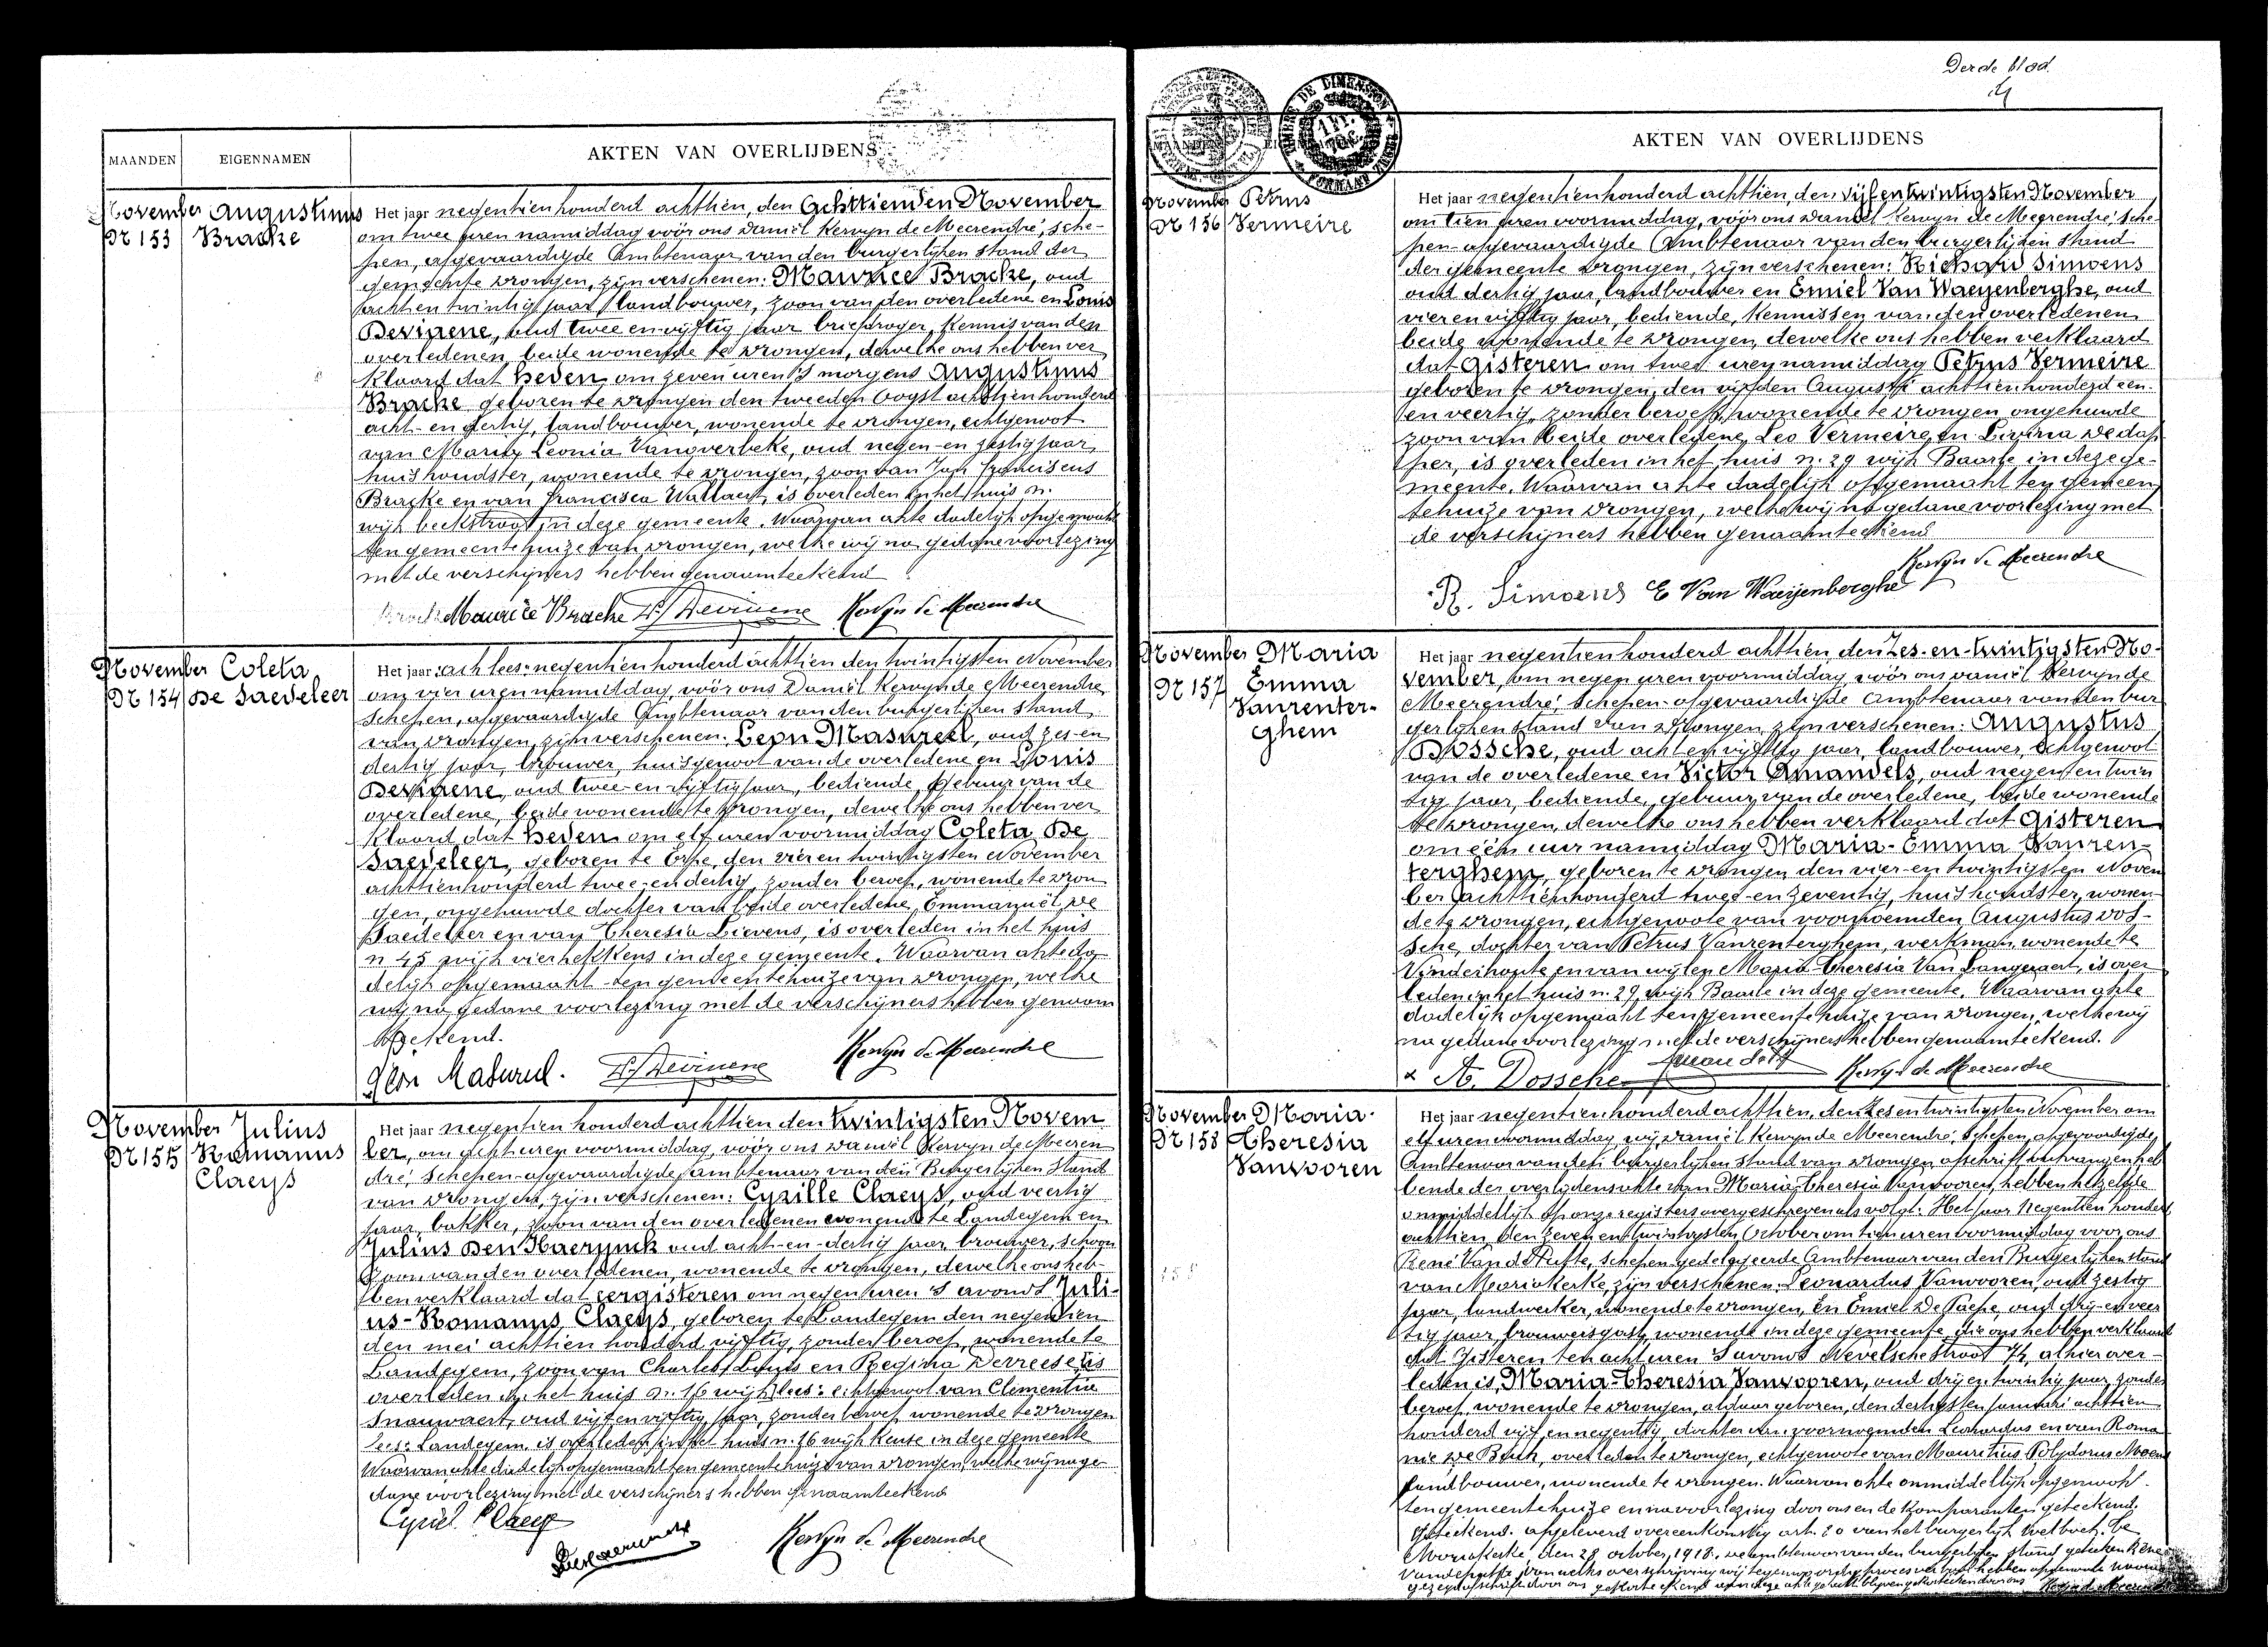 MAANDEN
EIGENNAMEN
AKTEN VAN OVERLIJDENS
November
Nr 153
Augustinus
Bracke
Het jaar negentienhonderd achttien, den Achttienden November
om twee uren namiddag vóór ons Daniël Kervyn de Meerendré, sche-
pen, afgevaardigde Ambtenaar van den burgerlijken stand der
gemeente Drongen, zijn verschenen: Maurice Bracke, oud
acht en twintig jaar, landbouwer, zoon van den overledene en Louis
Devinene, oud twee-en-vijftig jaar briefdrager, kennis van den
overledenen, beide wonende te Drongen, dewelke ons hebben ver
klaard dat heden om zeven uren 's morgens Augustinus
Bracke geboren te Drongen den tweeden Oogst achttienhonderd
acht- en dertig, landbouwer, wonende te Drongen, echtgenoot
van Maria Leonia Vanoverbeke, oud negen-en zestig jaar,
huishoudster, wonende te Drongen, zoon van Jan Franciscus
Bracke en van Francisca Wallaert, is overleden in het huis n.
wijk beekstraat in deze gemeente. Waarvan akte dadelijk opgemaakt
ten gemeentehuize van Drongen, welke wij na gedane voorlezing
met de verschijners hebben genaamteekend
Maurice Bracke L. Devinene Kervyn de Meerendré
November
Nr 154
Coleta
De Saedeleer
Het jaar : acht lees: negentienhonderd achttien den twintigsten November
om vier uren namiddag, vóór ons Daniël Kervyn de Meerendré
Schepen, afgevaardigde Ambtenaar van den burgerlijken stand
van Drongen, zijn verschenen: Leon Masureel, oud zes-en
dertig jaar, brouwer, huisgenoot van de overledene en Louis
Devinene, oud twee-en-vijftig jaar, bediende, gebuur van de
overledene, beide wonende te Drongen, dewelke ons hebben ver
klaard dat heden om elf uren voormiddag Coleta De
Saedeleer, geboren te Erpe, den vier en twintigsten November
achttienhonderd twee-en dertig, zonder beroep, wonende te Dron
gen, ongehuwde dochter van beide overledene, Emmanuël De
Saedeleer en van Theresia Lievens, is overleden in het huis
n 45 wijk vierhekkens in deze gemeente. Waarvan akte da
delijk opgemaakt ten gemeentehuize van Drongen, welke
wij na gedane voorlezing met de verschijners hebben genaam
teekend.
Léon Masureel. L. Devinene Kervyn de Meerendré
November
Nr 155
Julius
Romanus
Claeys
Het jaar negentienhonderd achttien den twintigsten Novem
ber, om acht uren voormiddag, vóór ons Daniël Kervyn de Meeren
dré, Schepen-afgevaardigde ambtenaar van den Burgerlijken Stand
van Drongen, zijn verschenen: Cyrille Claeys, oud veertig
jaar, bakker, zoon van den overledenen wonende te Landegem en
Julius Den Haerynck oud acht-en-dertig jaar, brouwer, schoon
zoon van den overledenen, wonende te Drongen, dewelke ons heb-
ben verklaard dat eergisteren om negen uren 's avonds Juli-
us-Romanus Claeys, geboren te Landegem den negentien
den mei achttienhonderd vijftig, zonder beroep, wonende te
Landegem, zoon van Charles Louis en Regina Derreese, is
overleden in het huis n. 16 wijk lees: echtgenoot van Clementia
Snauwaert, oud vijf en vijftig jaar, zonder beroep wonende te Drongen
lees: Landegem, is overleden in het huis n. 26 wijk Keuse in deze gemeente
Waarvan akte dadelijk opgemaakt ten gemeentehuize van Drongen, welke wij na ge
dane voorlezing met de verschijners hebben genaamteekend
Cyriel Claeys
Kervyn de Meerendré
Derde blad.
AKTEN VAN OVERLIJDENS
November
Nr 156
Petrus
Vermeire
Het jaar negentienhonderd achttien, den vijfentwintigsten November
om tien uren voormiddag, vóór ons Daniël Kervyn de Meerendré, Sche-
pen-afgevaardigde Ambtenaar van den burgerlijken stand
der gemeente Drongen, zijn verschenen: Richard Simoens
oud dertig jaar, landbouwer en Emiel Van Waeyenberghe, oud
vier en vijftig jaar, bediende, kennissen van den overledenen
beide wonende te Drongen, dewelke ons hebben verklaard
dat gisteren om twee uren namiddag Petrus Vermeire
geboren te Drongen, den vijfden Augusti achttienhonderd een-
en veertig, zonder beroep, wonende te Drongen, ongehuwde
zoon van beide overledene, Leo Vermeire en Livina De dap
per, is overleden in het huis n. 29 wijk Baarle in deze ge-
meente. Waarvan akte dadelijk opgemaakt ten gemeen
tehuize van Drongen, welke wij na gedane voorlezing met
de verschijners hebben genaamteekend
Kervyn de Meerendré
R. Simoens E Van Waeyenberghe
November
Nr 157
Maria
Emma
Vanrenter-
ghem
Het jaar negentienhonderd achttien den Zes-en-twintigsten No-
vember, om negen uren voormiddag, vóór ons Daniël Kervyn de
Meerendré, Schepen-afgevaardigde ambtenaar van den bur
gerlijken stand van Drongen, zijn verschenen: Augustus
Dossche, oud acht en vijftig jaar, landbouwer, echtgenoot
van de overledene en Victor Amandels, oud negen en twin
tig jaar, bediende, gebuur van de overledene, beide wonende
te Drongen, dewelke ons hebben verklaard dat Gisteren
om één uur namiddag Maria-Emma Vanren-
terghem, geboren te Drongen den vier-en twintigsten Novem
ber achttienhonderd twee-en zeventig, huishoudster, wonen-
de te Drongen, echtgenoote van voornoemden Augustus Dos-
sche, dochter van Petrus Vanrenterghem, werkman, wonende te
Vinderhoute en van wijlen Maria Theresia Van Langeraert, is over
leden in het huis n. 29, wijk Baarle in deze gemeente. Waarvan akte
dadelijk opgemaakt ten gemeentehuize van Drongen, welke wij
na gedane voorlezing met de verschijners hebben genaamteekend.
A. Dossche Amandels Kervyn de Meerendré
November
Nr 158
Maria-
Theresia
Vanvooren
Het jaar negentienhonderd achttien, den Zes en twintigsten November om
elf uren voormiddag, wij Daniël Kervyn de Meerendré, Schepen, afgevaardigde
Ambtenaar van den burgerlijken stand van Drongen afschrift ontvangen heb
bende der overlijdensakte van Maria-Theresia Vanvooren, hebben hetzelfde
onmiddellijk op onze registers overgeschreven als volgt: Het jaar negentien honderd
achttien, den zeven en twintigsten October om tien uren voormiddag voor ons
René Van de Putte, Schepen-gedelegeerde Ambtenaar van den Burgerlijken stand
van Mariakerke, zijn verschenen: Leonardus Vanvooren, oud zestig
jaar, landwerker, wonende te Drongen, En Emiel De Paepe, oud drij-en veer
tig jaar, brouwersgast, wonende in deze gemeente, die ons hebben verklaard
dat gisteren ten acht uren 's avonds Nevelschestraat 74, alhier over-
leden is, Maria-Theresia Vanvooren, oud drij en twintig jaar, zonder
beroep, wonende te Drongen, aldaar geboren, den dertigsten Januari achttien
honderd vijf en negentig, dochter van voornoemden Leonardus en van Roma
nie De Buck, overleden te Drongen, echtgenote van Mauritius Polydorus Moens
landbouwer, wonende te Drongen. Waarvan akte onmiddellijk opgemaakt
ten gemeentehuize en na voorlezing door ons en de komparanten geteekend.
Geteekend. afgeleverd overeenkomstig art. 80 van het burgerlijk wetboek. Te
Mariakerke, den 28 october, 1918. De ambtenaar van den burgerlijken stand, geteekend René
Vandeputte,